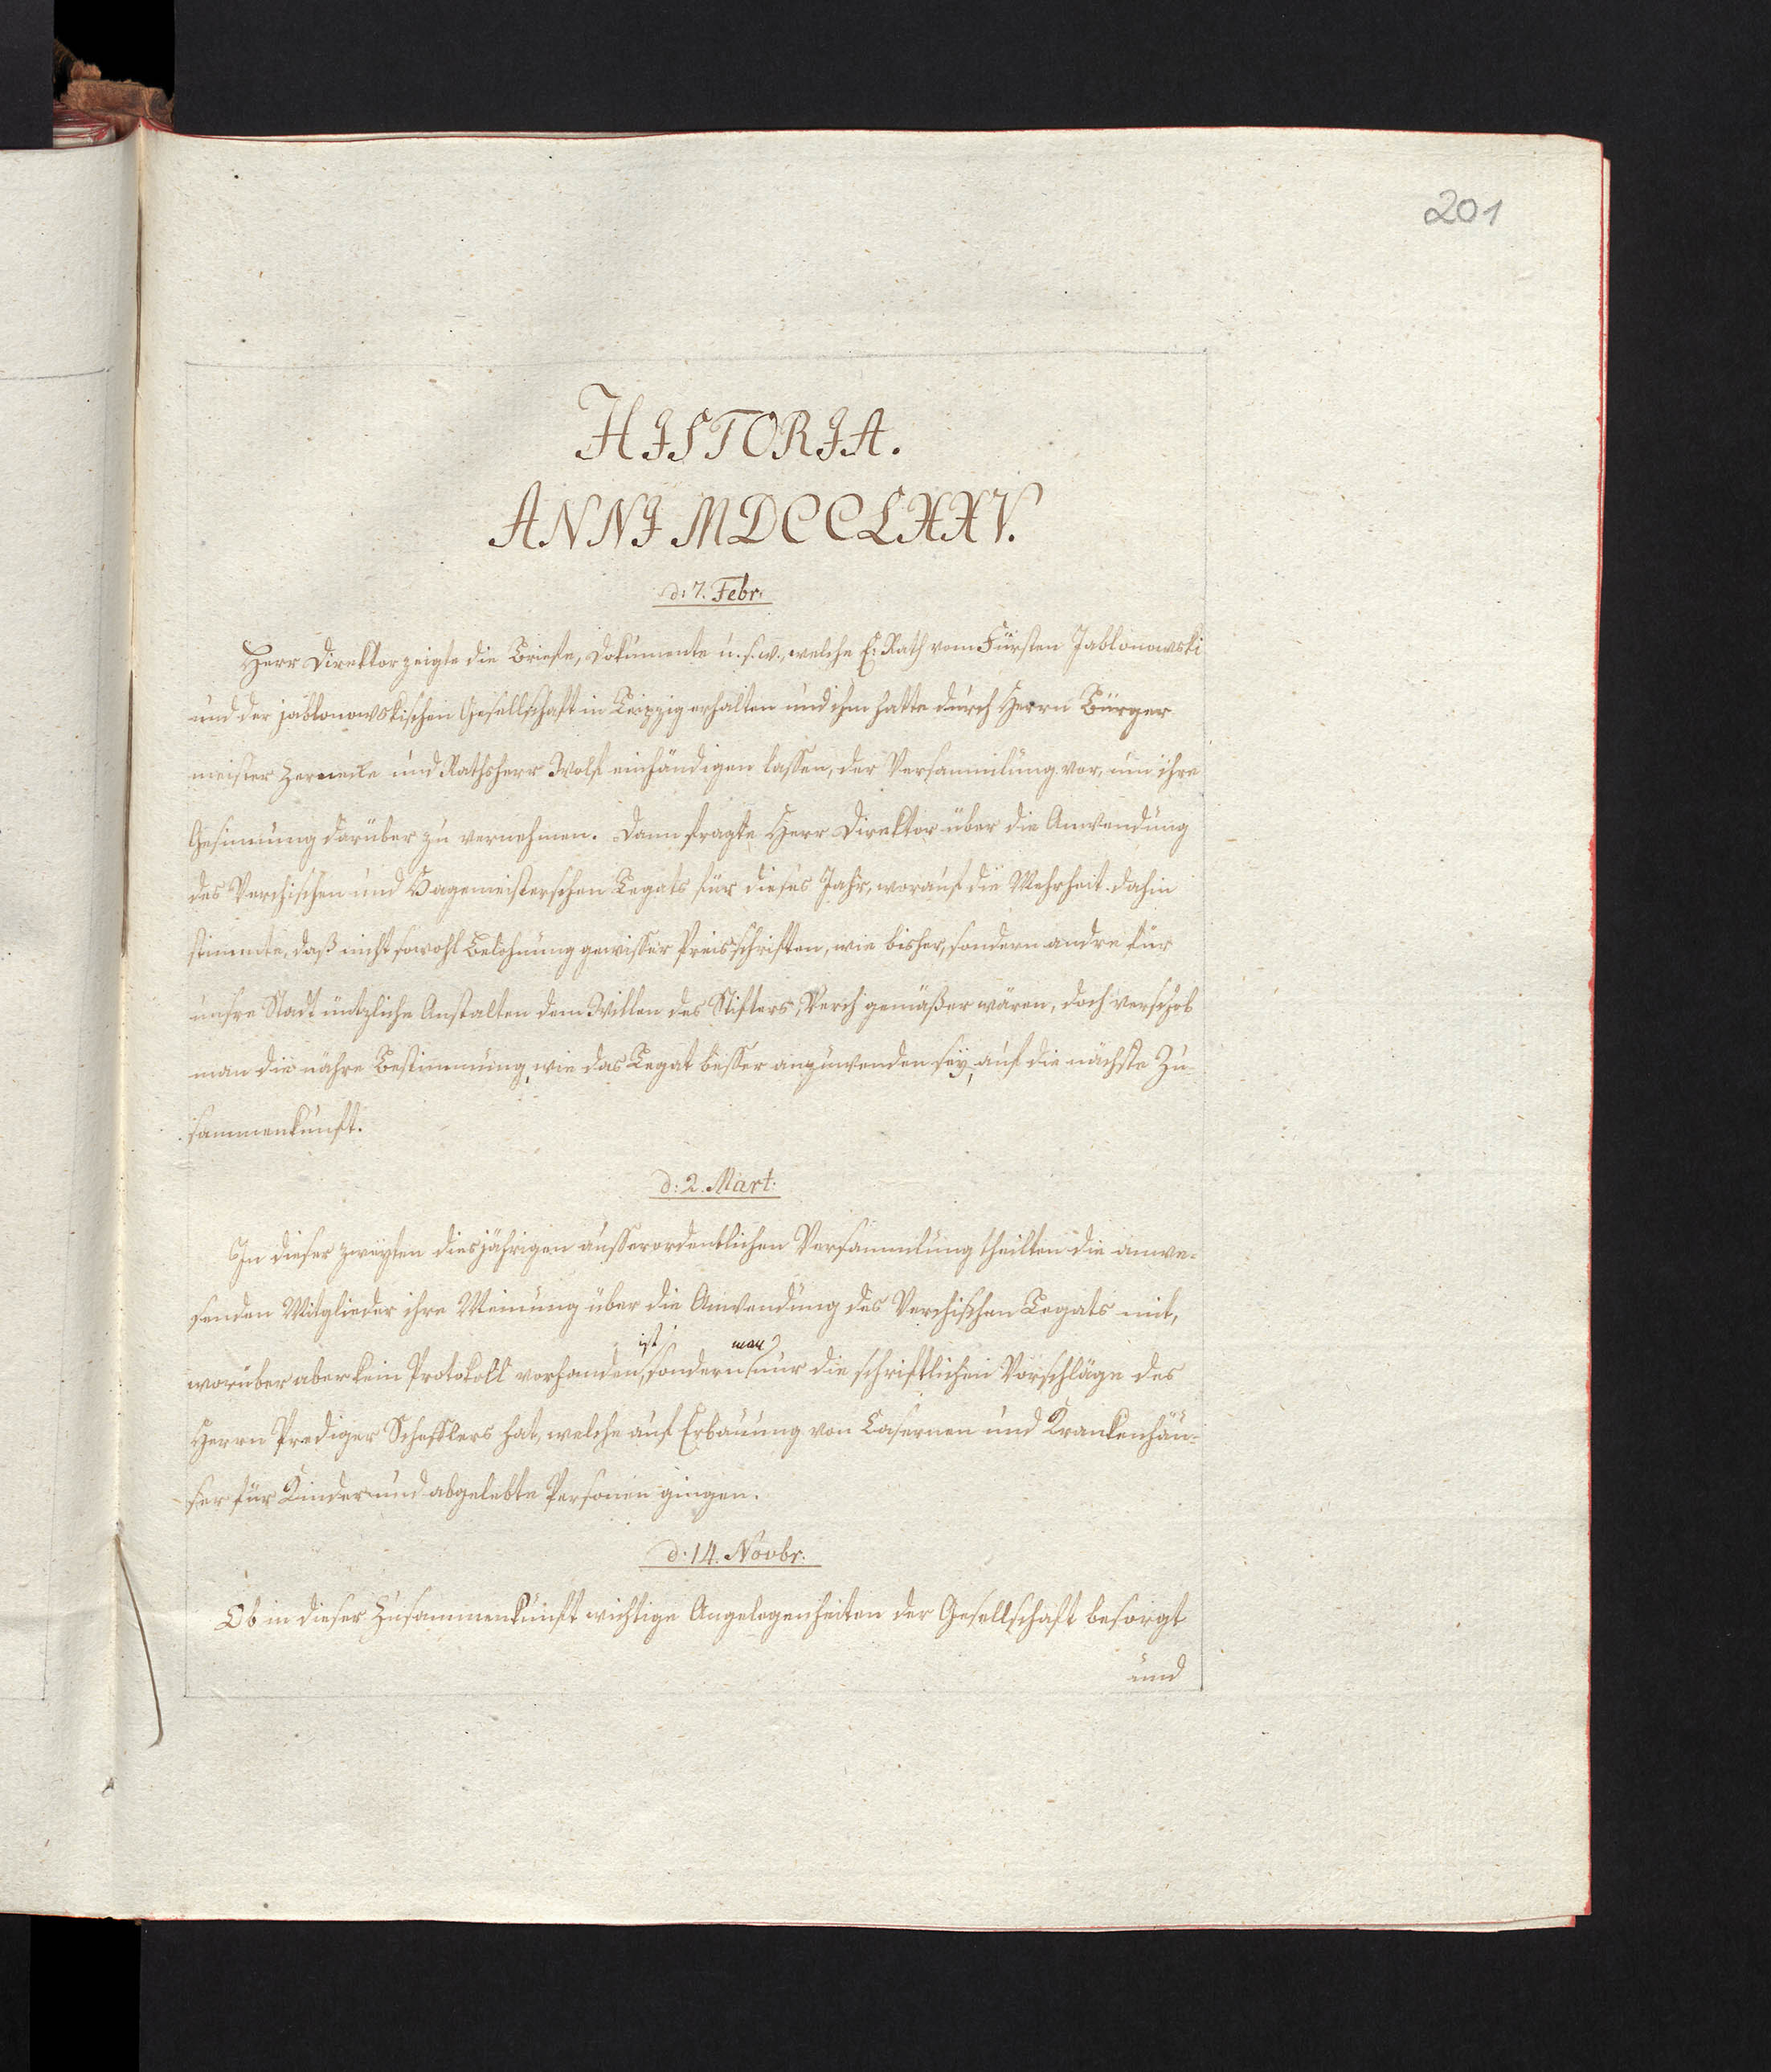 201
HISTORIA.
ANNI MDCCLXXV.
d: 7. Febr.
Herr Direktor zeigte die Briefe, Dokumente u. s. w., welche E. Rath vom Fürsten Jablonowski
und der jablonowskischen Gesellschaft in Leipzig erhalten und ihm hatte durch Herrn Bürger
meister Zernecke und Rathsherr Wolf einhändigen lassen, der Versammlung vor, um ihre
Gesinnung darüber zu vernehmen. Dann fragte Herr Direktor über die Anwendung
des Verchischen und Hagemeisterschen Legats für dieses Jahr, worauf die Mehrheit dahin
stimmte, daß nicht sowohl Belohnung gewisser Preisschriften, wie bisher, sondern andre für
unsre Stadt nützliche Anstalten dem Willen des Stifters, Verch gemäßer wären, doch verschob
man die nähre Bestimmung, wie das Legat besser anzuwenden sey, auf die nächste Zu-
sammenkunft.
d: 2. Mart:
In dieser zweyten diesjährigen ausserordentlichen Versammlung theilten die anwe-
senden Mitglieder ihre Meinung über die Anwendung des Verchischen Legats mit,
ist man
worüber aber kein Protokoll vorhanden, sondern nur die schriftlichen Vorschläge des
Herrn Prediger Schefflers hat, welche auf Erbauung von Casernen und Krankenhäu-
ser für Kinder und abgelebte Personen gingen.
d: 14. Novbr.
Ob in dieser Zusammenkunft wichtige Angelegenheiten der Gesellschaft besorgt
und